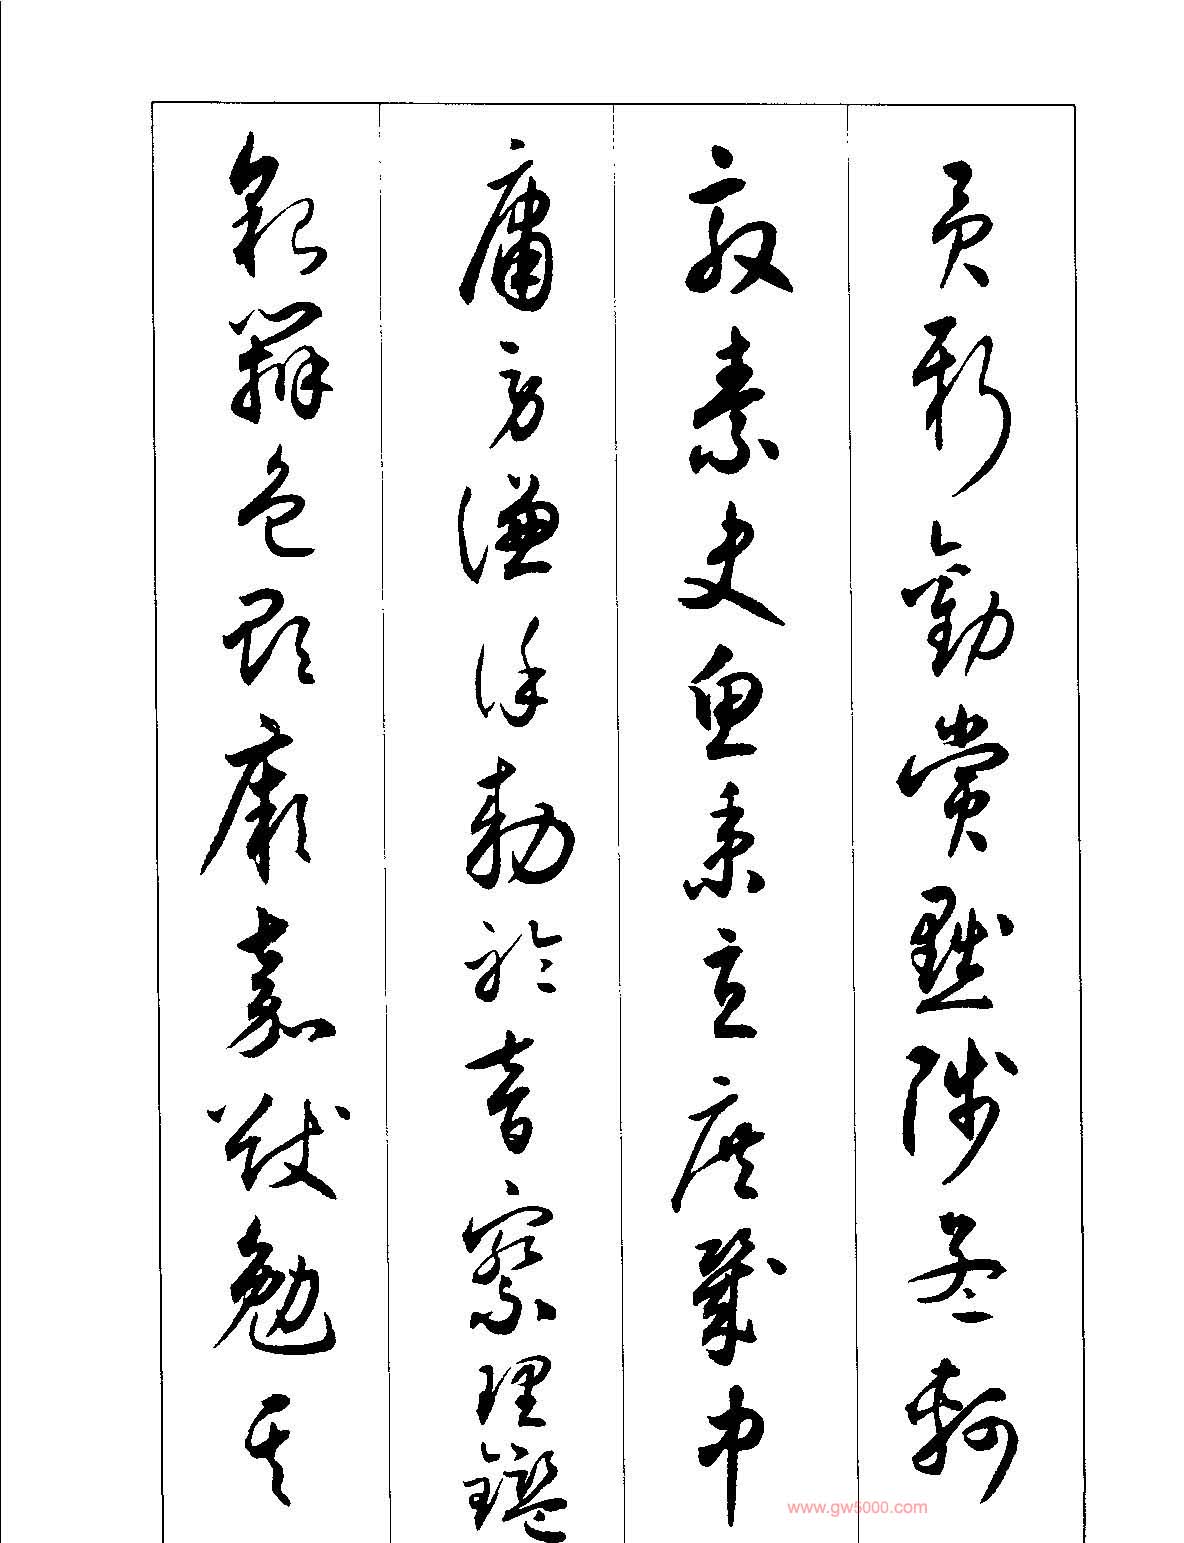 貢新勸賞黜陟孟軻
敦素史魚秉直庶幾中
庸勞謙謹勅聆音察理鑑
貌辨色貽厥嘉猷勉其
www.gw5000.com